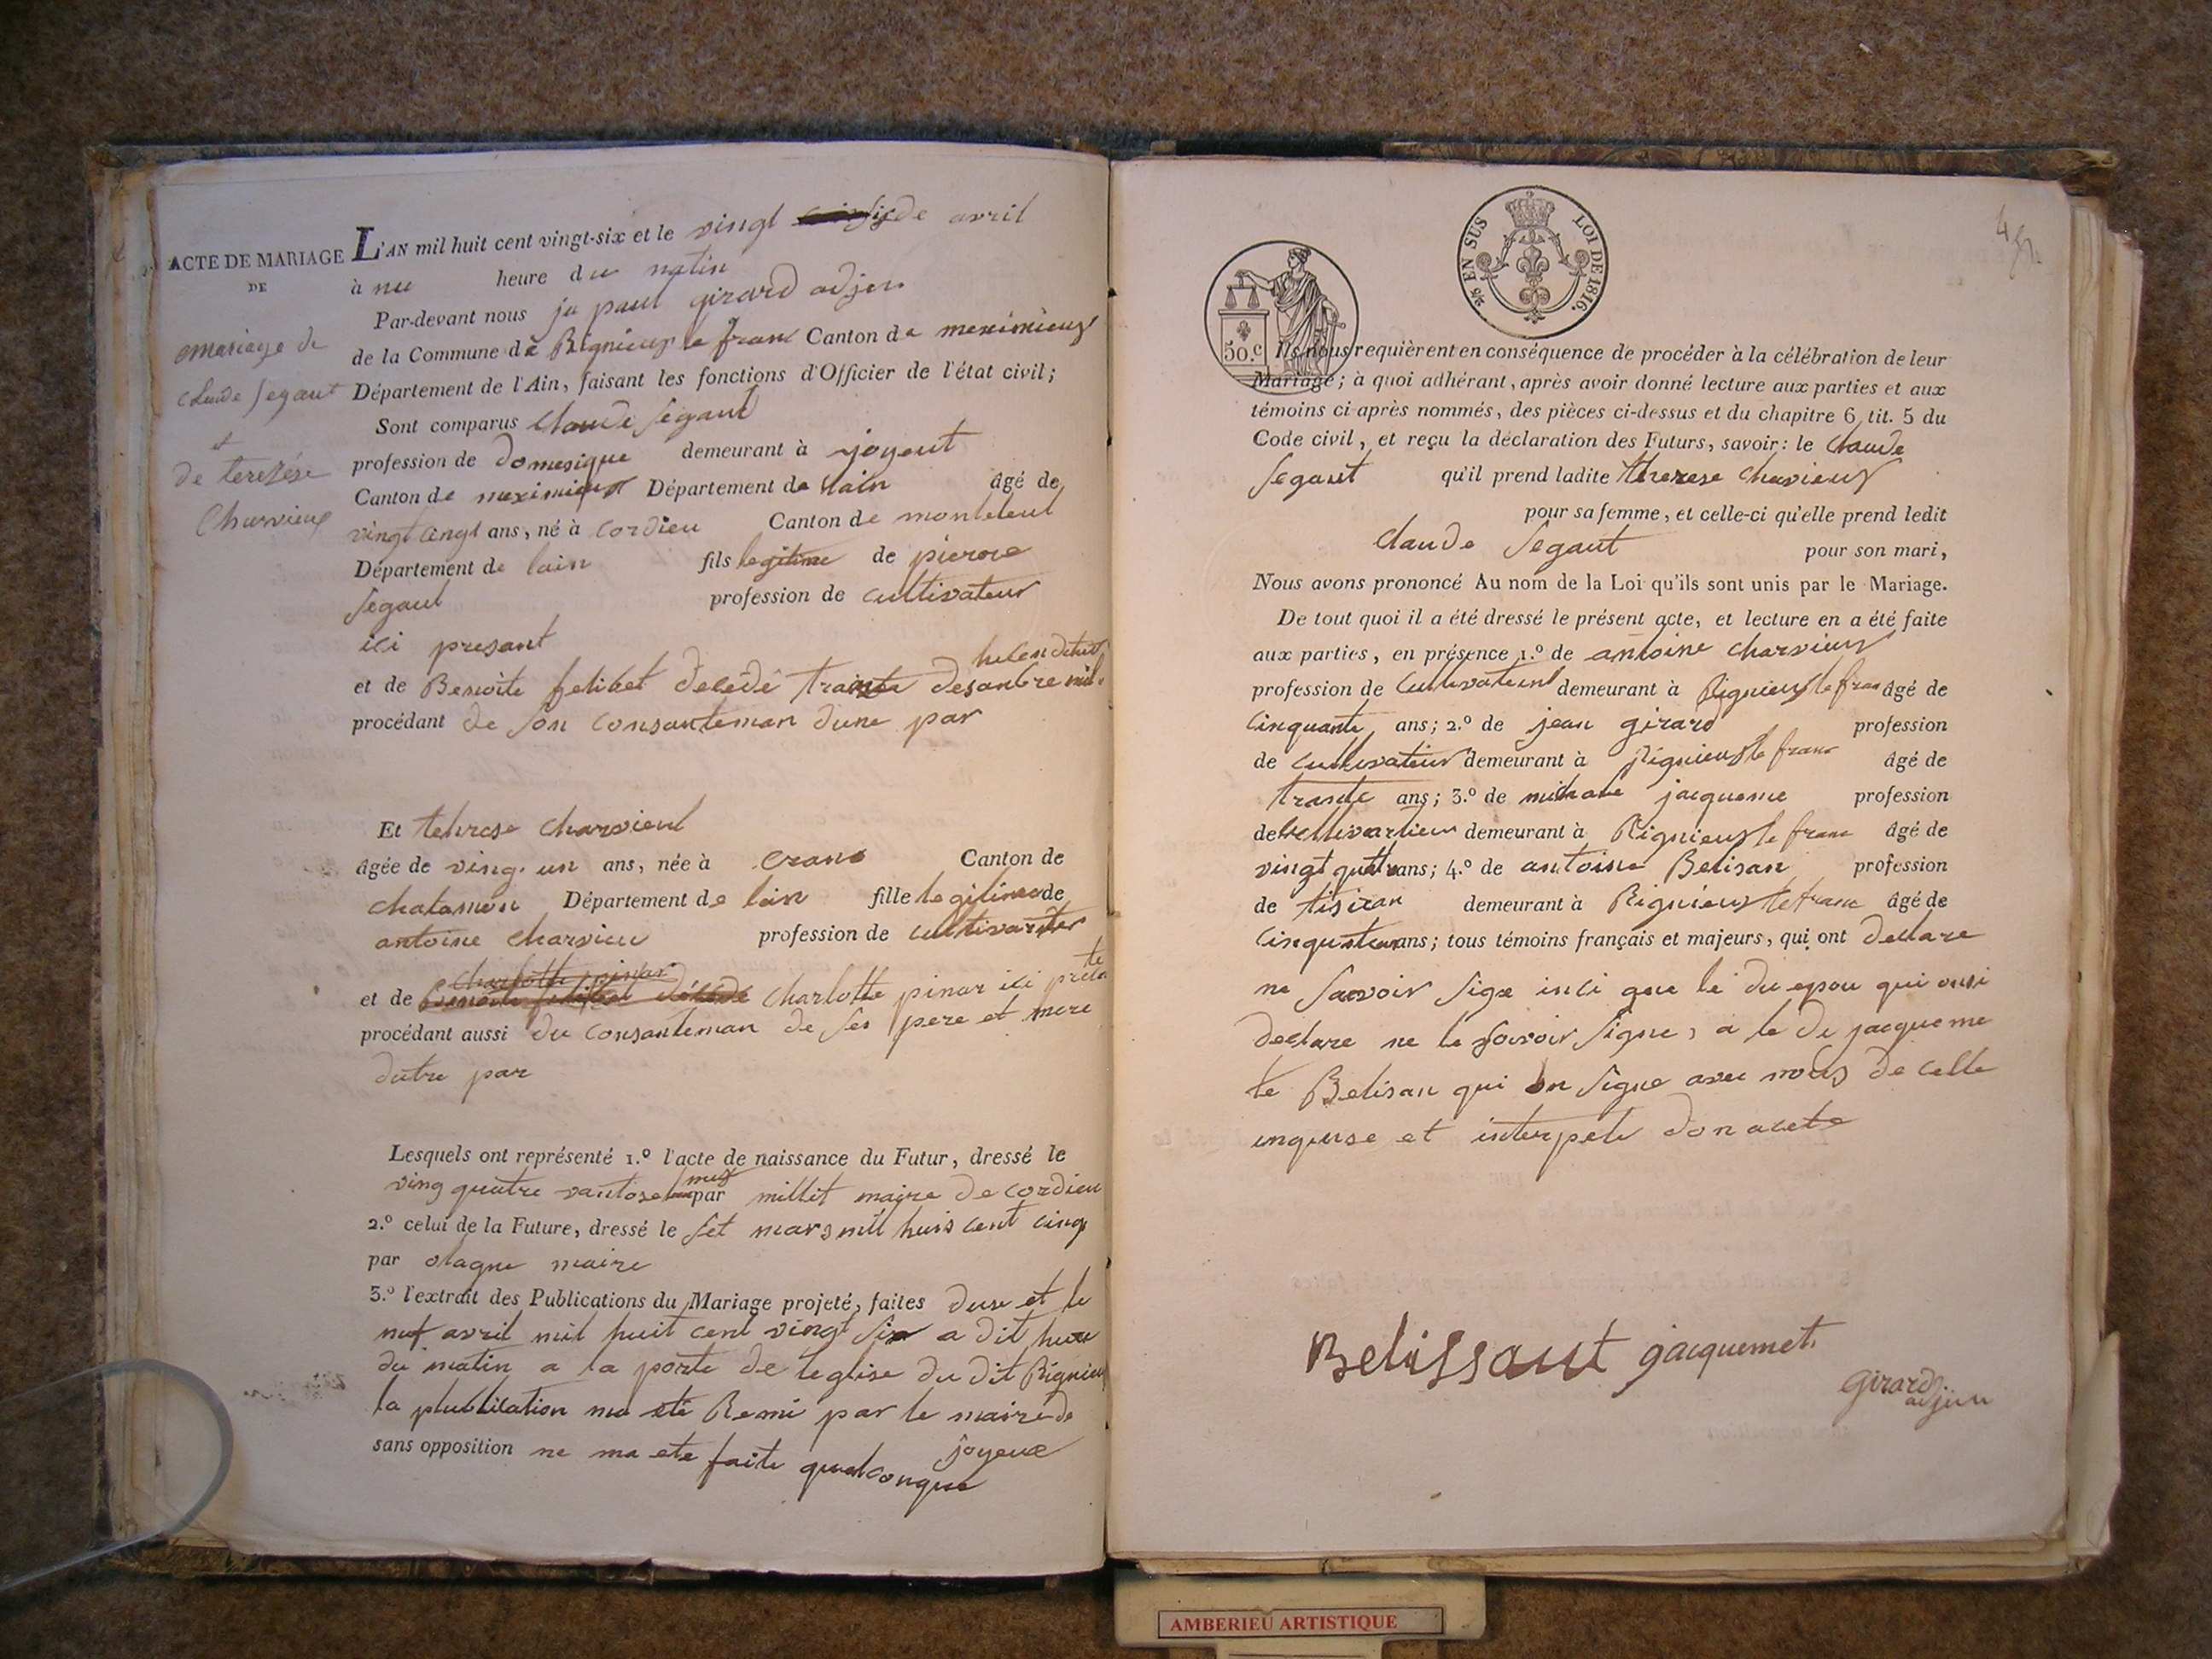 ACTE DE MARIAGE
DE
mariage de
claude segaut
et
de terezése
Charvieux
L'AN mil huit cent vingt-six et le vingt six de avril
à heure du matin
Par-devant nous paul girard adjou
de la Commune de Rignieux le franc Canton de meximieux
Département de l'Ain, faisant les fonctions d'Officier de l'état civil;
Sont comparus claude segaut
profession de domesique demeurant à joyeut
Canton de meximieux Département de lain âgé de
vingt cingt ans, né à cordieu Canton de monteleul
Département de lain fils legitime de pierore
segaul profession de cultivateur
ici presant
et de Benoite felibet decedé trante desanbre mil
procédant de son consanteman dune par
Et tehrese charvieul
âgée de ving. un ans, née à crans Canton de
chalamon Département de lain fille legitime de
antoine charvieu profession de
et de charlotte pinar ici
procédant aussi du consanteman de ses pere et mere
dutre par
Lesquels ont représenté 1.º l'acte de naissance du Futur, dressé le
ving quatre vantose par millit maire de cordieu
2.º celui de la Future, dressé le set mars mil huis cent cinq
par olagne maire
3.º l'extrait des Publications du Mariage projeté, faites duse et le
nuf avril mil huit cent vingt six a dit hure
du matin a la porte de leglise du dit Rignieu
la plublication ma eté Remi par le maire de
joyeux
sans opposition ne ma ete faite quelconque
5/10 EN SUS LOI DE 1816.
50.c
Ils nous requièrent en conséquence de procéder à la célébration de leur
Mariage; à quoi adhérant, après avoir donné lecture aux parties et aux
témoins ci-après nommés, des pièces ci-dessus et du chapitre 6, tit. 5 du
Code civil, et reçu la déclaration des Futurs, savoir: le claude
segaut qu'il prend ladite therese charvieux
pour sa femme, et celle-ci qu'elle prend ledit
claude segaut pour son mari,
Nous avons prononcé Au nom de la Loi qu'ils sont unis par le Mariage.
De tout quoi il a été dressé le présent acte, et lecture en a été faite
aux parties, en présence 1.º de antoine charvieux
profession de cultivateur demeurant à Rignieux le fran âgé de
cinquante ans; 2.º de jean girard profession
de cultivateur demeurant à Rignieux le franc âgé de
trante ans; 3.º de jacqueme profession
de demeurant à Rignieux le franc âgé de
vingt quatre ans; 4.º de antoine Belisan profession
de tisiran demeurant à Rignieux le franc âgé de
ans; tous témoins français et majeurs, qui ont declare
ne savoir signe insi que le du epou qui ausi
declare ne le savoir signe, a le de jacqueme
te Belisan qui on signe avec nous de celle
enquise et interpele don acete
Belissant jacquemet
Girard
adjou
AMBERIEU ARTISTIQUE